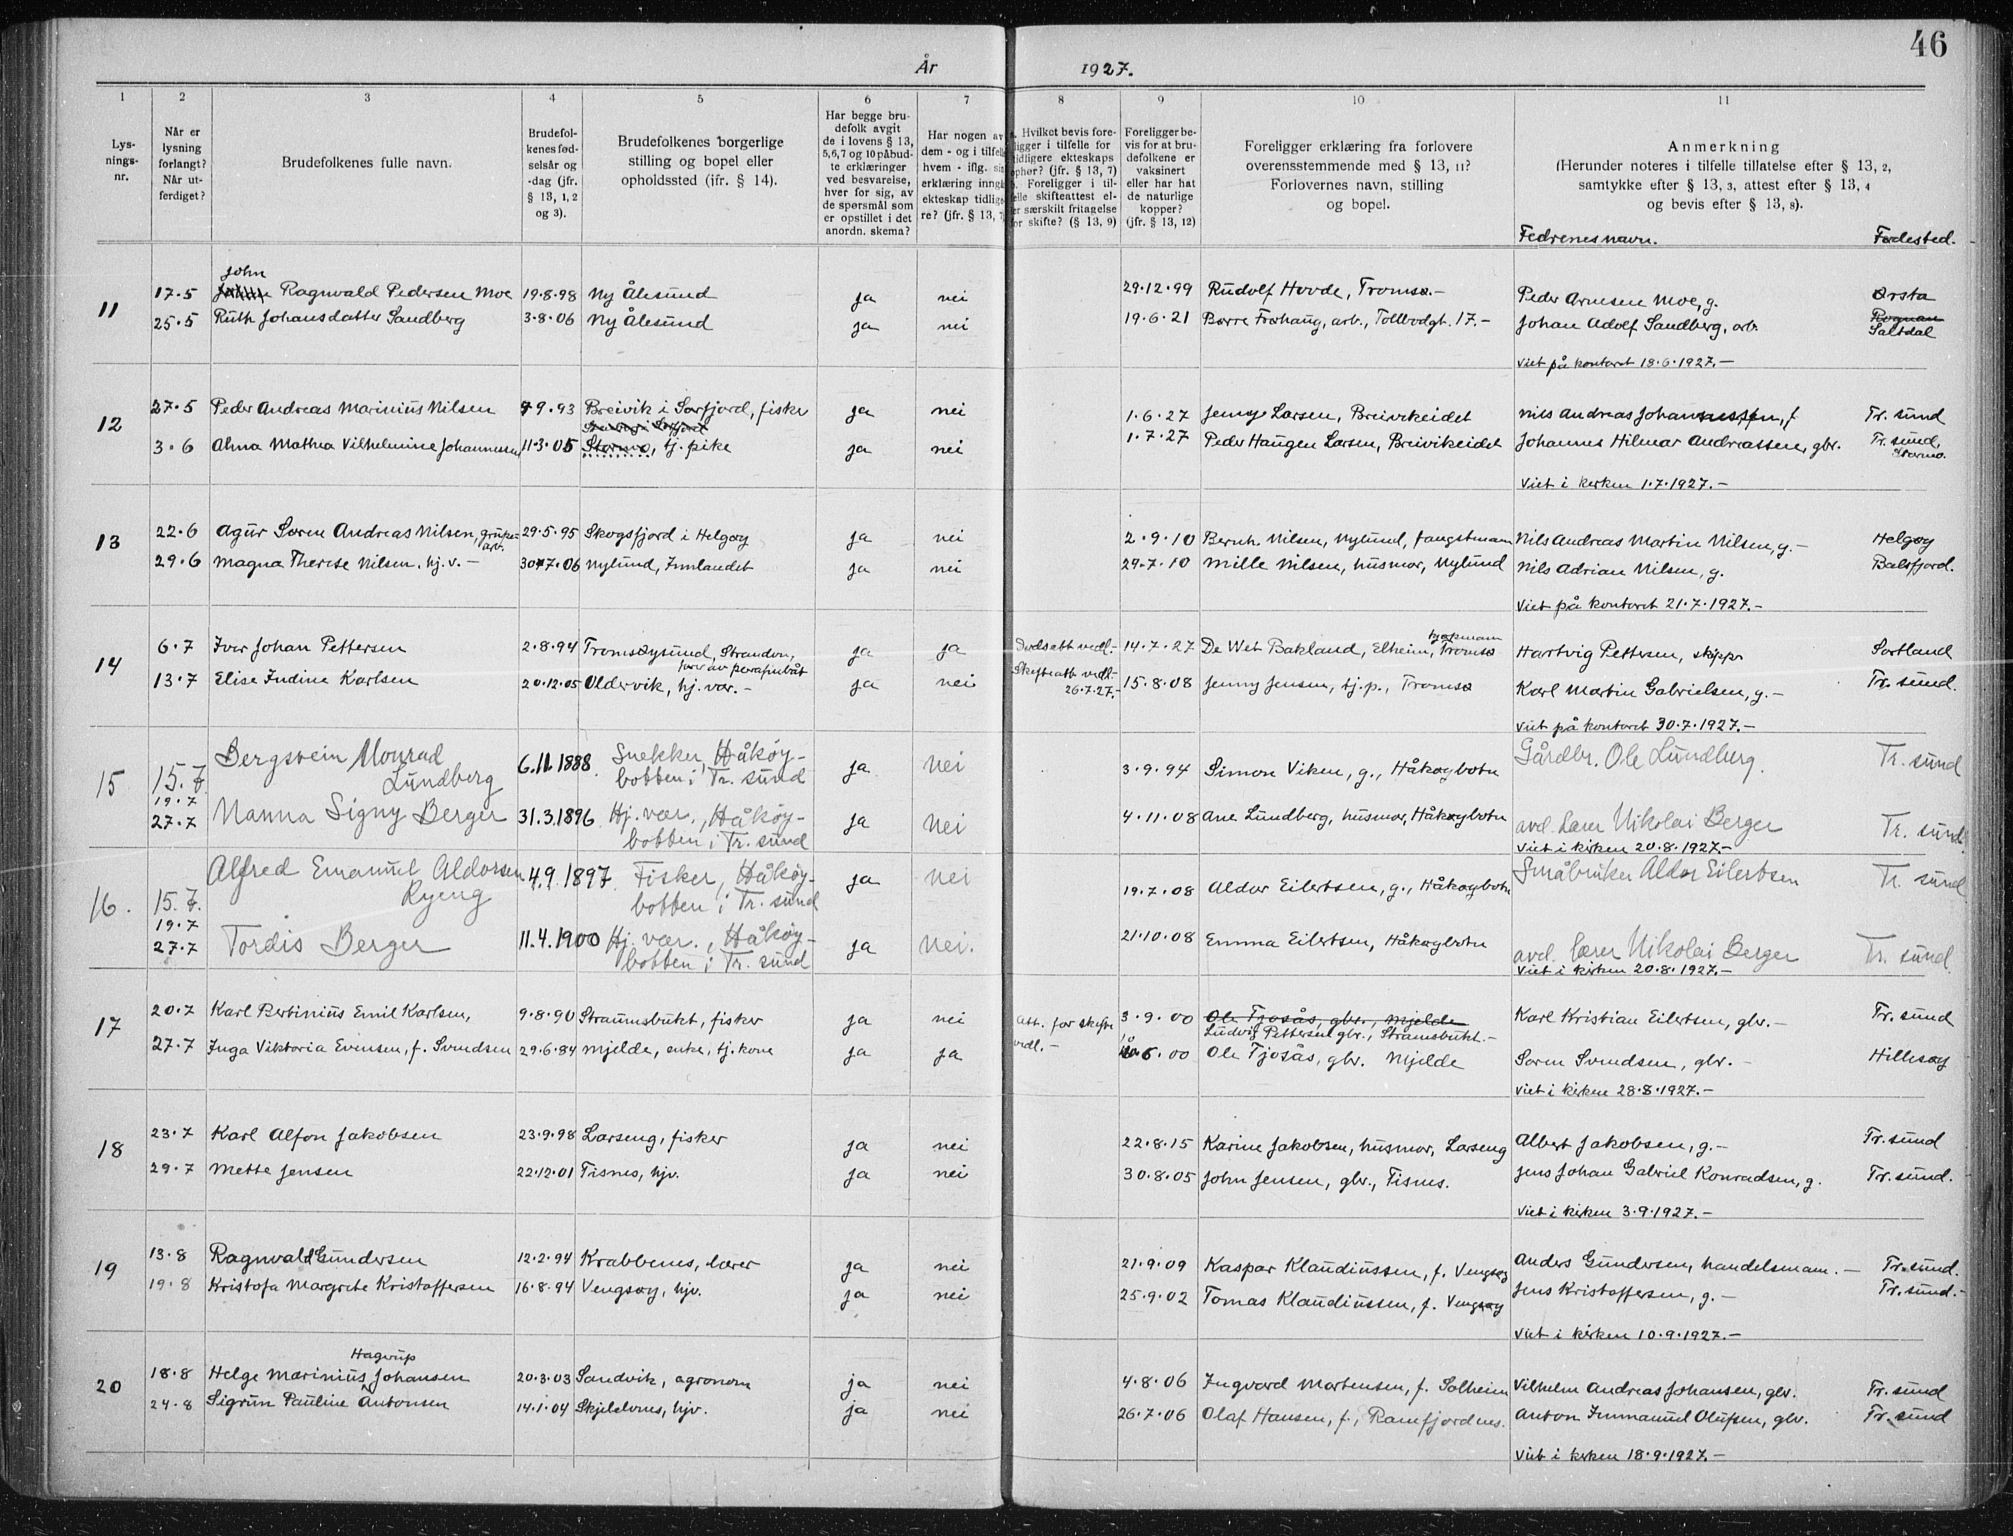 46
År 1927.
1 2 3 4 5 6 7 8 9 10 11
Lys-
nings-
nr.
Når er
lysning
forlangt?
Når ut-
ferdiget?
Brudefolkenes fulle navn.
Brudefol-
kenes fød-
selsår og
-dag (jfr.
§ 13, 1, 2
og 3).
Brudefolkenes borgerlige
stilling og bopel eller
opholdssted (jfr. § 14).
Har begge bru-
defolk avgit
de i lovens § 13,
5, 6, 7 og 10 påbud-
te erklæringer
ved besvarelse,
hver for sig, av
de spørsmål som
er opstillet i det
anordn. skema?
Har nogen av
dem - og i tilfelle
hvem - iflg. sin
erklæring inngå
ekteskap tidlige
re? (jfr. § 13, 7
Hvilket bevis fore-
ligger i tilfelle for
tidligere ekteskaps
ophør? (jfr. § 13, 7)
Foreligger i til-
felle skifteattest el-
er særskilt fritagelse
for skifte? (§ 13, 9)
Foreligger be-
vis for at bru-
defolkene er
vaksinert
eller har hat
de naturlige
kopper?
(jfr. § 13, 12)
Foreligger erklæring fra forlovere
overensstemmende med § 13, 11?
Forlovernes navn, stilling
og bopel.
Anmerkning
(Herunder noteres i tilfelle tillatelse efter § 13, 2,
samtykke efter § 13, 3, attest efter § 13, 4
og bevis efter § 13, 8).
Fedrenes navn. Fødested.
John
11 17.5 Ragnvald Pedersen Moe 19.8.98 Ny Ålesund ja nei 29.12.99 Rudolf Hovde, Tromsø.- Peder Arnesen Moe, g. Ørsta
25.5 Ruth Johansdatter Sandberg 3.8.06 Ny Ålesund ja nei 19.6.21 Børre Frøhaug, arb., Tollbodgt. 17.- Johan Adolf Sandberg, arb. Rognan
Saltdal
Viet på kontoret 18.6.1927.-
12 27.5 Peder Andreas Marinius Nilsen 9.93 Breivik i Sørfjord, fisker ja nei 1.6.27 Jenny Larsen, Breivikeidet Nils Andreas Johannessen, f Tr. sund
3.6 Alma Mathea Vilhelmine Johannessen 11.3.05 Stormo, tj. pike ja nei 1.7.27 Peder Haugen Larsen, Breivikeidet Johannes Hilmar Andreassen, gbr. Tr. sund,
Stormo.
Viet i kirken 1.7.1927.-
13 22.6 Agur Søren Andreas Nilsen, grube-
arb. 29.5.95 Skogsfjord i Helgøy ja nei 2.9.10 Bernh. Nilsen, Nylund, fangstmann Nils Andreas Martin Nilsen, g.- Helgøy
29.6 Magna Therese Nilsen, hj. v.- 30.7.06 Nylund, Innlandet ja nei 29.7.10 Mille Nilsen, husmor, Nylund Nils Adrian Nilsen, g. Balsfjord.
Viet på kontoret 21.7.1927.-
14 6.7 Ivar Johan Pettersen 2.8.94 Tromsøysund, Stranden, ja ja Dødsatt. vedl.- 14.7.27 De Wet Bakland, Elheim, Tromsø Hartvig Pettersen, skipper Sortland
13.7 Elise Indine Karlsen 20.12.05 Oldervik, hj. vær.- ja nei Skifteatt. vedl.-
26.7.27.- 15.8.08 Jenny Jensen, tj.p., Tromsø Karl Martin Gabrielsen, g.- Tr. sund.
Viet på kontoret 30.7.1927.-
15 15.7. Bergsvein Monrad
Lundberg 6.11.1888. Snekker, Håkøy-
botten i Tr. sund ja nei 3.9.94 Simon Viken, g., Håkøybotn Gårdbr. Ole Lundberg. Tr. sund
19.7
27.7 Nanna Signy Berger 31.3.1896 Hj. vær., Håkøy-
botten i Tr. sund ja nei 4.11.08 Ane Lundberg, husmor, Håkøybotn avd. Lærer Nikolai Berger Tr. sund.
Viet i kirken 20.8.1927.-
16. 15.7. Alfred Emanuel Aldorsen
Ryeng 4.9.1897 Fisker, Håkøy-
botten i Tr. sund ja nei 19.7.08 Aldor Eilertsen, g., Håkøybotn Småbruker Aldor Eilertsen Tr. sund
19.7
27.7 Tordis Berger 11.4.1900 Hj. vær., Håkøy-
botten i Tr. sund ja nei. 21.10.08 Emma Eilertsen, Håkøybotn avd. lærer Nikolai Berger Tr. sund.
Viet i kirken 20.8.1927.-
17 20.7 Karl Bertinius Emil Karlsen, 9.8.90 Straumsbukt, fisker ja nei att. for skifte
vedl.- 3.9.00 Ole Tjosås, gbr., Mjelde
Ludvig Pettersen gbr., Straumsbukt.- Karl Kristian Eilertsen, gbr.- Tr. sund
27.7 Inga Viktoria Evensen, f. Svendsen 29.6.84 Mjelde, enke, tj. kone ja ja 6.00 Ole Tjosås, gbr. Mjelde Søren Svendsen, gbr.- Hillesøy
Viet i kirken 28.8.1927.-
18 23.7 Karl Alfon Jakobsen 23.9.98 Larseng, fisker ja nei 22.8.15 Karine Jakobsen, husmor, Larseng Albert Jakobsen, g.- Tr. sund
29.7 Mette Jensen 22.12.01 Tisnes, hjv. ja nei 30.8.05 John Jensen, gbr., Tisnes. Jens Johan Gabriel Konradsen, g. Tr. sund.
Viet i kirken 3.9.1927.-
19 13.8 Ragnvald Gundersen 12.2.94 Krabbenes, lærer ja nei 21.9.09 Kaspar Klaudiussen, f. Vengsøy Anders Gundersen, handelsmann.- Tr. sund.
19.8 Kristofa Margrete Kristoffersen 16.8.94 Vengsøy, hjv. ja nei 25.9.02 Tomas Klaudiussen, f. Vengsøy Jens Kristoffersen, g.- Tr. sund.-
Viet i kirken 10.9.1927.-
Hagrup
20 18.8 Helge Marinius Johansen 20.3.03 Sandvik, agronom ja nei 4.8.06 Ingvard Mortensen, f. Solheim Vilhelm Andreas Johansen, gbr. Tr. sund
24.8 Sigrun Pauline Antonsen 14.1.04 Skjelnes, hjv. ja nei 26.7.06 Olaf Hansen, f., Ramfjordnes. Anton Immanuel Olufsen, gbr. Tr. sund
Viet i kirken 18.9.1927.-